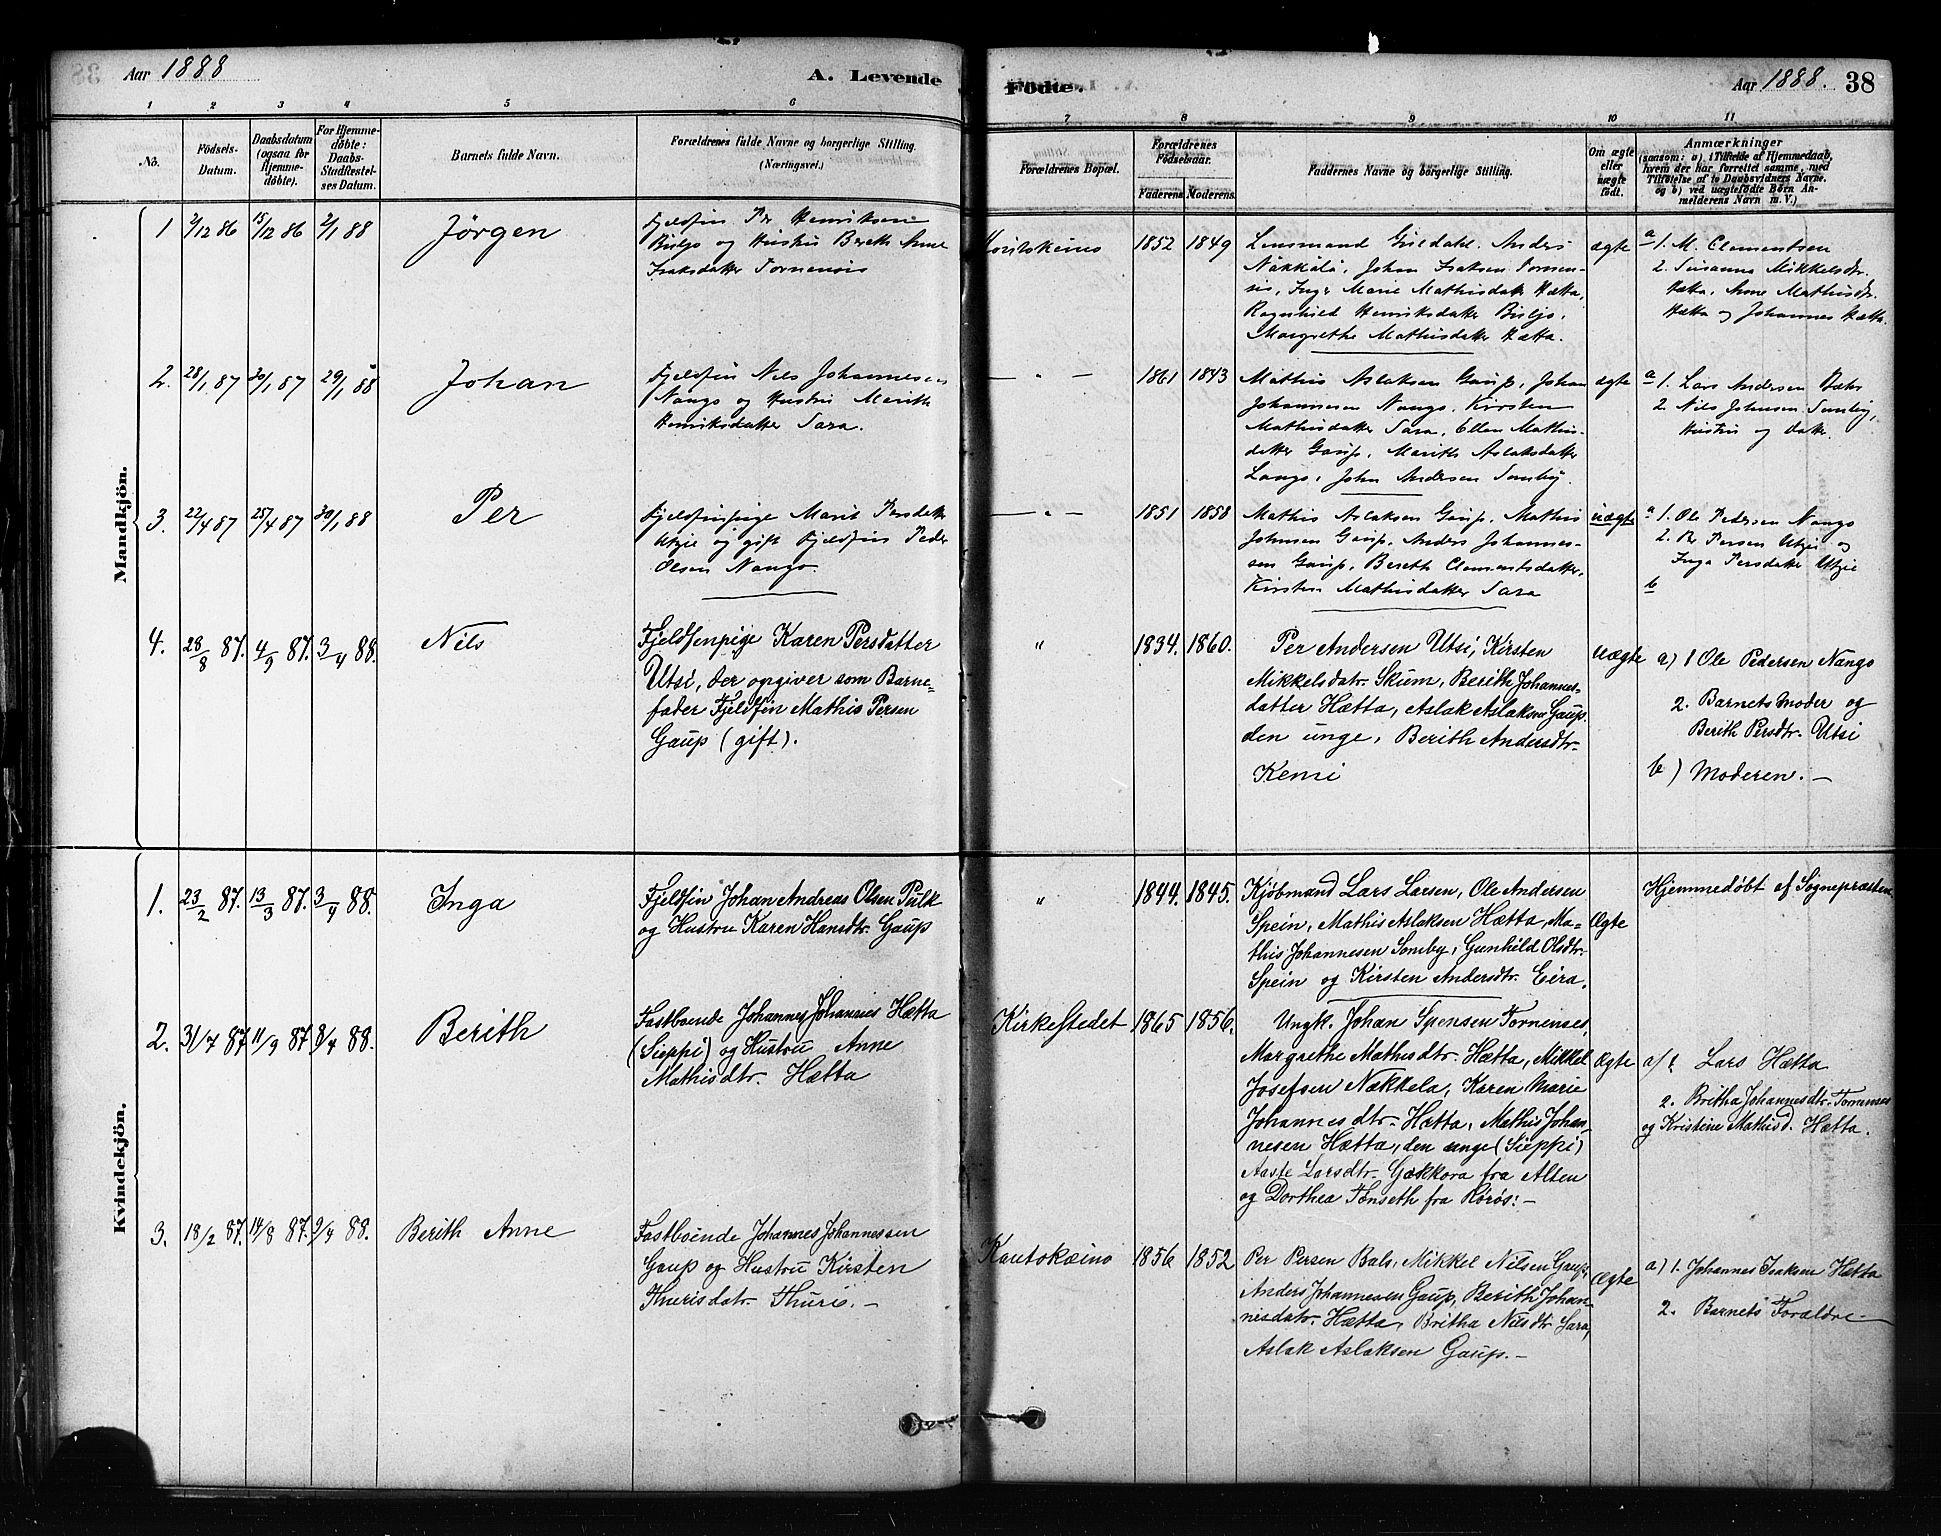 Aar 1888
A. Levende
Födte.
Aar 1888.
38
1 2 3 4 5 6 7 8 9 10 11
No.
Födsels-
Datum.
Daabsdatum
(ogsaa for
Hjemme-
döbte).
For Hjemme-
döbte:
Daabs-
Stadfæstel-
ses Datum.
Barnets fulde Navn.
Forældrenes fulde Navne og borgerlige Stilling.
(Næringsvei.)
Forældrenes Bopæl.
Forældrenes
Födselsaar.
Faderens Moderens
Faddernes Navne og borgerlige Stilling.
Om ægte
eller
uægte
födt.
Anmærkninger
(saasom: a) i Tilfælde af Hjemmedaab,
hvem der har forrettet samme, med
Tilföielse af to Daabsvidners Navne.
og b) ved uægtefödte Börn An-
melderens Navn m. V.)
Mandkjön.
1 2/12 86 15/12 86 2/1 88
Jörgen
Fjeldfin Per Henriksen
Buljo og Hustru Berith Anne
Isaksdatter Tornensis
1852 1849
Lensmand Guldahl. Anders
Näkkälä, Johan Isaksen Tornen-
sis, Inger Marie Mathisdatr Hætta,
Ragnhild Henriksdatter Buljo.
Margrethe Mathisdatter Hætta.
ægte
a 1. M. Clementsen
2. Susanna Mikkelsdtr.
Hætta, Anne Mathisdtr.
Hætta og Johannes Hætta.
2. 28/1 87 30/1 87 29/1 88
Johan
Fjeldfin Nils Johannesen
Nango og Hustru Marith
Henriksdatter Sara.
— " —
1861 1843
Mathis Aslaksen Gaup, Johan
Johannesen Nango. Kirsten
Mathisdatter Sara, Ellen Mathis-
datter Gaup, Marith Aslaksdatter
Lango, John Andersen Somby.
ægte
a 1. Lars Andersen Bæhr
2. Nils Johnsen Somby,
Hustru og datter.
3. 22/4 87 25/4 87 30/1 88
Per
Fjeldfinpige Marit Persdatter
Utsie og gift Fjeldfin Peder
Olsen Nango
— " —
1851 1858
Mathis Aslaksen Gaup. Mathis
Johnsen Gaup, Anders Johannes-
sen Gaup, Bereth Clementsdatter,
Kirsten Mathisdatter Sara
uægte
a 1. Ole Pedersen Nango
2. Per Persen Utsie og
Inga Persdatter Utsie
b
4. 28/8 87. 4/9 87. 3/4 88.
Nils
Fjeldfenpige Karen Persdatter
Utsi, der opgiver som Barne-
fader Fjeldfin Mathis Persen
Gaup (gift).
"
1834. 1860.
Per Andersen Utsi, Kirsten
Mikkelsdatr. Skum, Berith Johannes-
datter Hætta, Aslak Aslaksen Gaup
den unge, Berith Andersdtr.
Kemi
Uægte
a) 1 Ole Pedersen Nango
2. Barnets Moder og
Berith Persdtr. Utsi
b) Moderen. —
Kvindekjön.
1. 23/2 87. 13/3 87. 3/4 88.
Inga
Fjeldfin Johan Andreas Olsen Pulk
og Hustru Karen Hansdtr. Gaup
"
1844. 1845.
Kjöbmand Lars Larsen, Ole Andersen
Spein, Mathis Aslaksen Hætta, Ma-
this Johannesen Somby, Gunhild Olsdtr.
Spein og Kirsten Andersdtr. Eira.
Ægte
Hjemmedöbt af Sognepræsten.
2. 31/7 87 11/9 87 8/4 88.
Berith
Fastboende Johannes Johannes Hætta
(Sieppi) og Hustru Anne
Mathisdtr. Hætta
Kirkestedet
1865 1856.
Ungk. Johan Spensen Tornenses,
Margrethe Mathisdtr. Hætta, Mikkel
Josefsen Nækkela, Karen Marie
Johannesdtr. Hætta, Mathis Johan-
nesen Hætta, den unge (Sieppi)
Aaste Larsdtr. Gækkora fra Alten
og Dorthea Tönseth fra Röros: —
Ægte
a) 1. Lars Hætta
2. Britha Johannesdtr. Tornenses
og Kristine Mathisd. Hætta.
3. 18/2 87. 14/8 87. 9/4 88.
Berith Anne
Fastboende Johannes Johannessen
Gaup og Hustru Kirsten
Thurisdatr. Thuri. —
Kautokæino
1856 1852
Per Persen Bals, Mikkel Nilsen Gaup,
Anders Johannesen Gaup, Berith Johan-
nesdatr. Hætta, Britha Nilsdtr. Sara,
Aslak Aslaksen Gaup. —
Ægte
a) 1. Johannes Isaksen Hætta
2. Barnets Forældre —